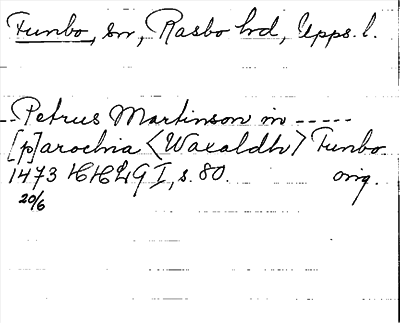 Funbo, sn, Rasbo hd, Upps. l.
--Petrus Martinson in -----
[p]arochia <Waxaldh> Funbo
1473 HHLG I, s. 80. orig.
20/6